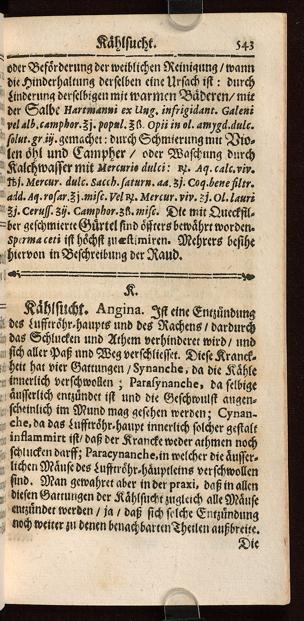 Kählsucht. 543
oder Beförderung der weiblichen Reinigung / wann
die Hinderhaltung derselben eine Ursach ist: durch
Linderung derselbigen mit warmen Bäderen / mit
der Salbe Hartmanni ex Ung. infrigidant. Galeni
vel alb. camphor. ℥j. popul. ℥ß. Opii in ol. amygd. dulc.
solut. gr. iij. gemachet: durch Schmierung mit Vio-
len öhl und Campher / oder Waschung durch
Kalchwasser mit Mercurio dulci: ℞. Aq. calc. viv.
℔j. Mercur. dulc. Sacch. saturn. aa. ʒj. Coq. bene filtr.
add. Aq. rosar. ℥j. misc. Vel ℞. Mercur. viv. ℥j. Ol. lauri
℥j. Ceruss. ℥ij. Camphor. ʒß. misc. Die mit Quecksil-
ber geschmierte Gürtel sind öffters bewährt worden.
Sperma ceti ist höchst zu æstimiren. Mehrers besihe
hiervon in Beschreibung der Raud.
K.
Kählsucht. Angina. Ist eine Entzündung
des Lufftröhr-haupts und des Rachens / dardurch
das Schlucken und Athem verhinderet wird / und
sich aller Paß und Weg verschliesset. Diese Kranck-
heit hat vier Gattungen / Synanche, da die Kähle
innerlich verschwollen; Parasynanche, da selbige
äusserlich entzündet ist und die Geschwulst augen-
scheinlich im Mund mag gesehen werden; Cynan-
che, da das Lufftröhr-haupt innerlich solcher gestalt
inflammirt ist / daß der Krancke weder athmen noch
schlucken darff; Paracynanche, in welcher die äusser-
lichen Mäuse des Lufftröhr-häuptleins verschwollen
sind. Man gewahret aber in der praxi, daß in allen
diesen Gattungen der Kählsucht zugleich alle Mäuse
entzündet werden / ja / daß sich solche Entzündung
noch weiter zu denen benachbarten Theilen außbreite.
Die